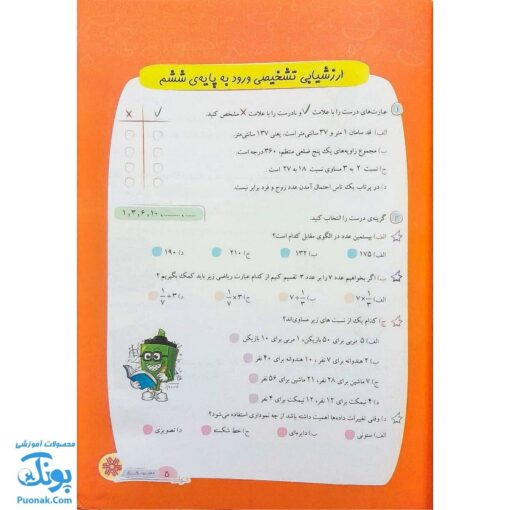 ارزشیابی تشخیصی ورود به پایه‌ی ششم
۱ عبارت‌های درست را با علامت ✓ و نادرست را با علامت ✗ مشخص کنید.
✗ ✓
الف) قد سامان ۱ متر و ۳۷ سانتی‌متر است، یعنی ۱۳۷ سانتی‌متر.
ب) مجموع زاویه‌های یک پنج ضلعی منتظم، ۳۶۰ درجه است.
ج) نسبت ۲ به ۳ مساوی نسبت ۱۸ به ۲۷ است.
د) در پرتاب یک تاس احتمال آمدن عدد زوج و فرد برابر نیست.
۲ گزینه‌ی درست را انتخاب کنید.
۱, ۳, ۶, ۱۰, ......., ....
الف) بیستمین عدد در الگوی مقابل کدام است؟
الف) ۱۷۵ ب) ۱۳۲ ج) ۲۱۰ د) ۱۹۰
ب) اگر بخواهیم عدد ۷ را بر عدد ۳ تقسیم کنیم از کدام عبارت ریاضی زیر باید کمک بگیریم؟
الف) ۷×۱/۳ ب) ۷÷۱/۳ ج) ۳×۱/۷ د) ۳÷۱/۷
ج) کدام یک از نسبت های زیر مساوی‌اند؟
الف) ۵ مربی برای ۵۰ بازیکن، ۱ مربی برای ۱۰ بازیکن
ب) ۲ هندوانه برای ۷ نفر، ۱۰ هندوانه برای ۴۰ نفر
ج) ۷ ماشین برای ۲۸ نفر، ۲۱ ماشین برای ۵۶ نفر
د) ۴ نیمکت برای ۱۲ نفر، ۱۲ نیمکت برای ۴ نفر
د) وقتی تغییرات داده‌ها اهمیت داشته باشد از چه نموداری استفاده می‌شود؟
الف) ستونی ب) دایره‌ای ج) خط شکسته د) تصویری
۵
محصولات آموزشی
پونک
Puonak.com